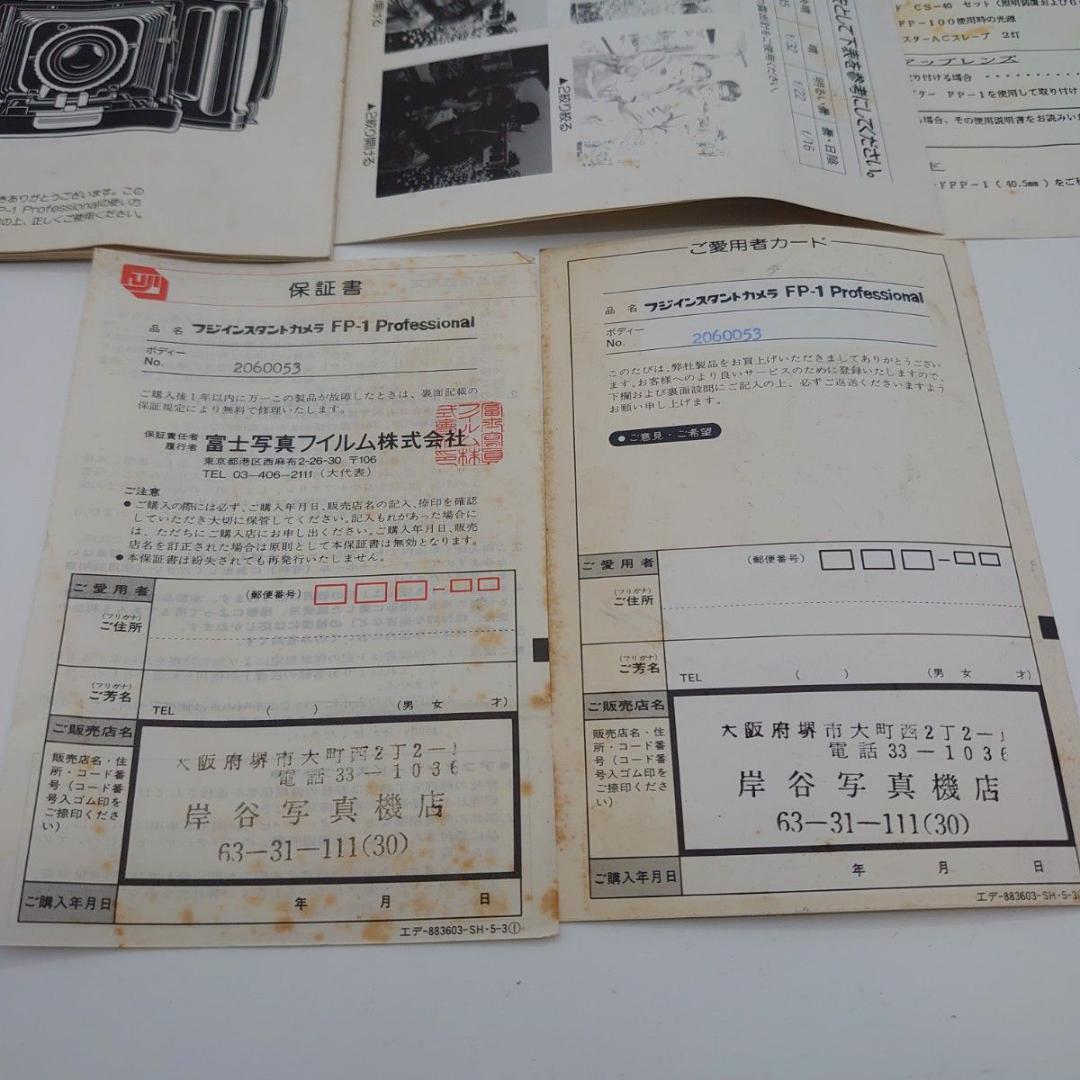 きありがとうございます。この
P-1 Professionalの使い方
の上、正しくご使用ください。
▲2絞り開ける
▲2絞り絞る
f/32
f/22
f/16
曇・日陰
として下表を参考にしてください。
CS-40 セット
FP-100使用時の光源
スターACスレーブ 2灯
アップレンズ
り付ける場合
ター FP-1を使用して取り付け
場合、その使用説明書をお読みい
FP-1(40.5mm)をご利
FUJI
保証書
品 名 フジインスタントカメラ FP-1 Professional
ボディー
No. 2060053
ご購入後1年以内に万一この製品が故障したときは、裏面記載の
保証規定により無料で修理いたします。
保証責任者
履行者
富士写真フイルム株式会社
東京都港区西麻布2-26-30 〒106
TEL 03-406-2111(大代表)
ご注意
●ご購入の際には必ず、ご購入年月日、販売店名の記入、捺印を確認
していただき大切に保管してください。記入もれがあった場合に
は、ただちにご購入店にお申し出ください。ご購入年月日、販売
店名を訂正された場合は原則として本保証書は無効となります。
●本保証書は紛失されても再発行いたしません。
ご愛用者
(郵便番号)
(フリガナ)
ご住所
(フリガナ)
ご芳名
TEL ( ) (男 女 才)
ご販売店名
販売店名・住
所・コード番
号(コード番
号入ゴム印を
ご捺印くださ
い)
大阪府堺市大町西2丁2-1
電話33-1036
岸谷写真機店
63-31-111(30)
ご購入年月日
年 月 日
エデ-883603-SH-5-3①
ご愛用者カード
品 名 フジインスタントカメラ FP-1 Professional
ボディー
No. 2060053
このたびは、弊社製品をお買上げいただきましてありがとうござい
ます。お客様へのより良いサービスのために登録いたしますので、
下欄および裏面設問にご記入の上、必ずご返送くださいますよう
お願い申し上げます。
●ご意見・ご希望
ご愛用者
(郵便番号)
(フリガナ)
ご住所
(フリガナ)
ご芳名
TEL ( ) (男 女 才)
ご販売店名
販売店名・住
所・コード番
号(コード番
号入ゴム印を
ご捺印くださ
い)
大阪府堺市大町西2丁2-1
電話33-1036
岸谷写真機店
63-31-111(30)
ご購入年月日
年 月 日
エデ-883603-SH-5-3